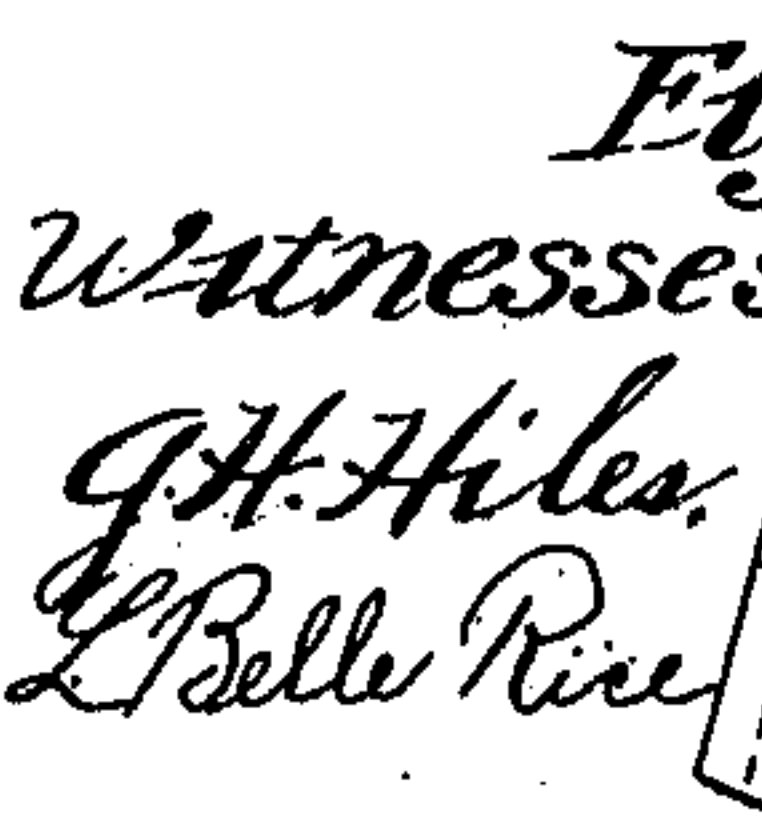 Fig
Witnesses
G.H. Hiles.
L Belle Rice